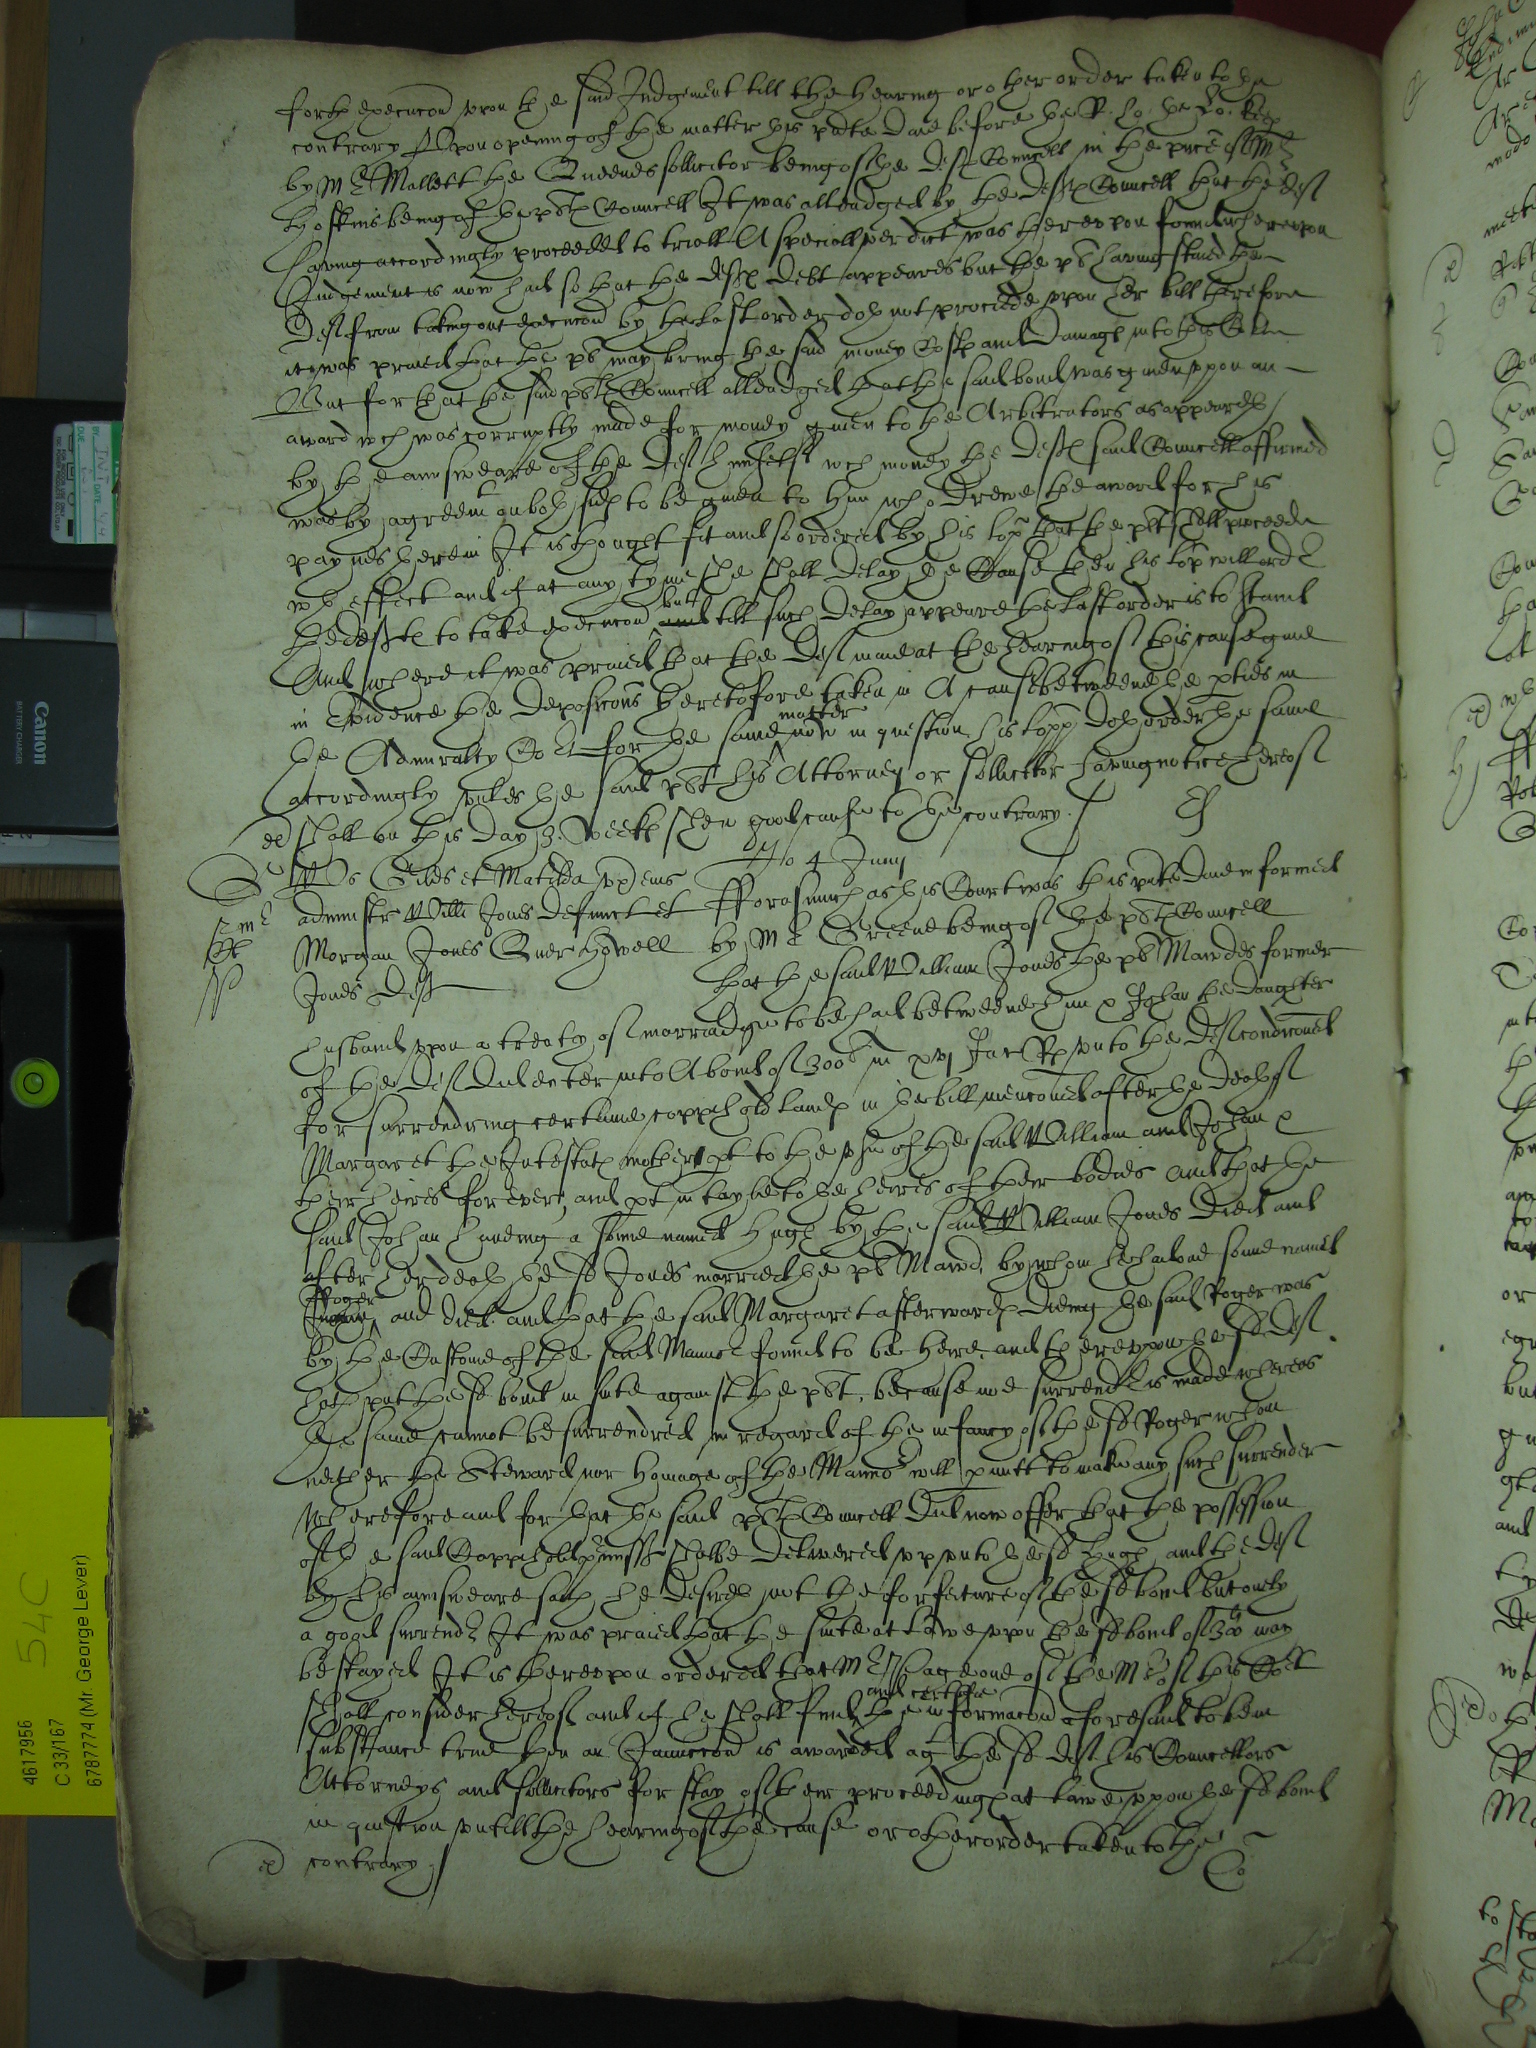 forth execucon upon the said Judgement till the hearing or other order taken to the
contrary Upon opening of the matter this pnte daie before the R. ho. the Lo. keep
by Mr Mallett the Queenes sollicitor being of the deft Councell in the pnce of Mr
Hoskins being of the plts Councell It was alleadged by the defts Councell that the deft
having accordingly proceeded to triall A speciall verdict was thereupon found whereupon
Judgement is now had so that the defts debt appeares but the pl having staied the
deft from taking out execucon by the last order doth not proceede upon her bill therefore
it was praied that the pl may bring the said money Costs and Damages into this Court
But for that the said plts Councell alleadged that the said bond was given upon an
award wch was corruptly made for money given to the Arbitrators as appeareth
by the answeare of the deft himself wch money the defts said Councell affirmed
was by agreemt on both sides to be given to him who drewe the award for his
paynes therein It is thought fit and so ordered by his lop that the plt shall proceede
wth effect and if at any tyme she shall delay the Cause then his lop will order
the deft to take execucon but till such delay appeare the last order is to stand
And where it was praied that the deft maie at the hearing of this cause give
in Evidence the deposicons heretofore taken in A cause betweene the pties in
the Admiralty Court for the same matter now in question his lopp doth order the same
accordingly unles the said plt his Attorney or sollicitor having notice hereof
shall on this day 3. weeks shew good cause to the contrary
ex
4 Junij
Wo Gilds et Matilda ux eius
administr Willi Jones defunct et
Morgan Jones Quer Howell
Jones Deft
Mr
Forasmuch as this Court was this pnte daie informed
by Mr Greene being of the plts Councell
that the said William Jones the pl Mawdes former
husband upon a treaty of marriadge to be had betweene him & Johan the daughter
of the deft did enter into A bond of 300li in xvj Jac Rs unto the deft condiconed
for surrendring certaine coppihold lands in the bill menconed after the death of
Margaret the Intestats mother pt to the use of the said William and Johan &
their heires for ever, and pt in tayle to the heires of their bodies and that the
said Johan haveing a sonne named Hugh by the said William Jones died and
after her death the sd Jones married the pl Mawd, by whom he had one sonne named
Roger and died and that the said Margaret afterwards dieing the said Roger was
by the Custome of the said Mannor found to be heire, and thereupon the sd deft
hath put the sd bond in suite against the plt, because noe surrender is made whereas
the same cannot be surrendred in regard of the infancy of the sd Roger whom
neither the Steward nor homage of the Mannor will pmitt to make any such surrender
Wherefore and for that the said plts Councell did now offer that the possession
of the said Coppihold pmisses shalbe delivered up unto the sd Hugh and the deft
by his answeare saith he desireth not the forfeiture of the sd bond but onely
a good surrender It was praied that the suite at lawe upon the sd bond of 300li may
be stayed It is thereupon ordered that Mr Page one of the Mrs of this Court
shall consider hereof and if he shall find and certifie the informacon aforesaid to be in
substance true then an Iniunccon is awarded agt the sd deft his Councellors
Attorneys and sollicitors for stay of their proceedings at lawe upon the sd bond
in question untill the hearing of the cause or other order taken to the
ex contrary
Co
54C
4617956
C 33/167
6787774 (Mr. George Lever)
Canon
BATTERY CHARGER